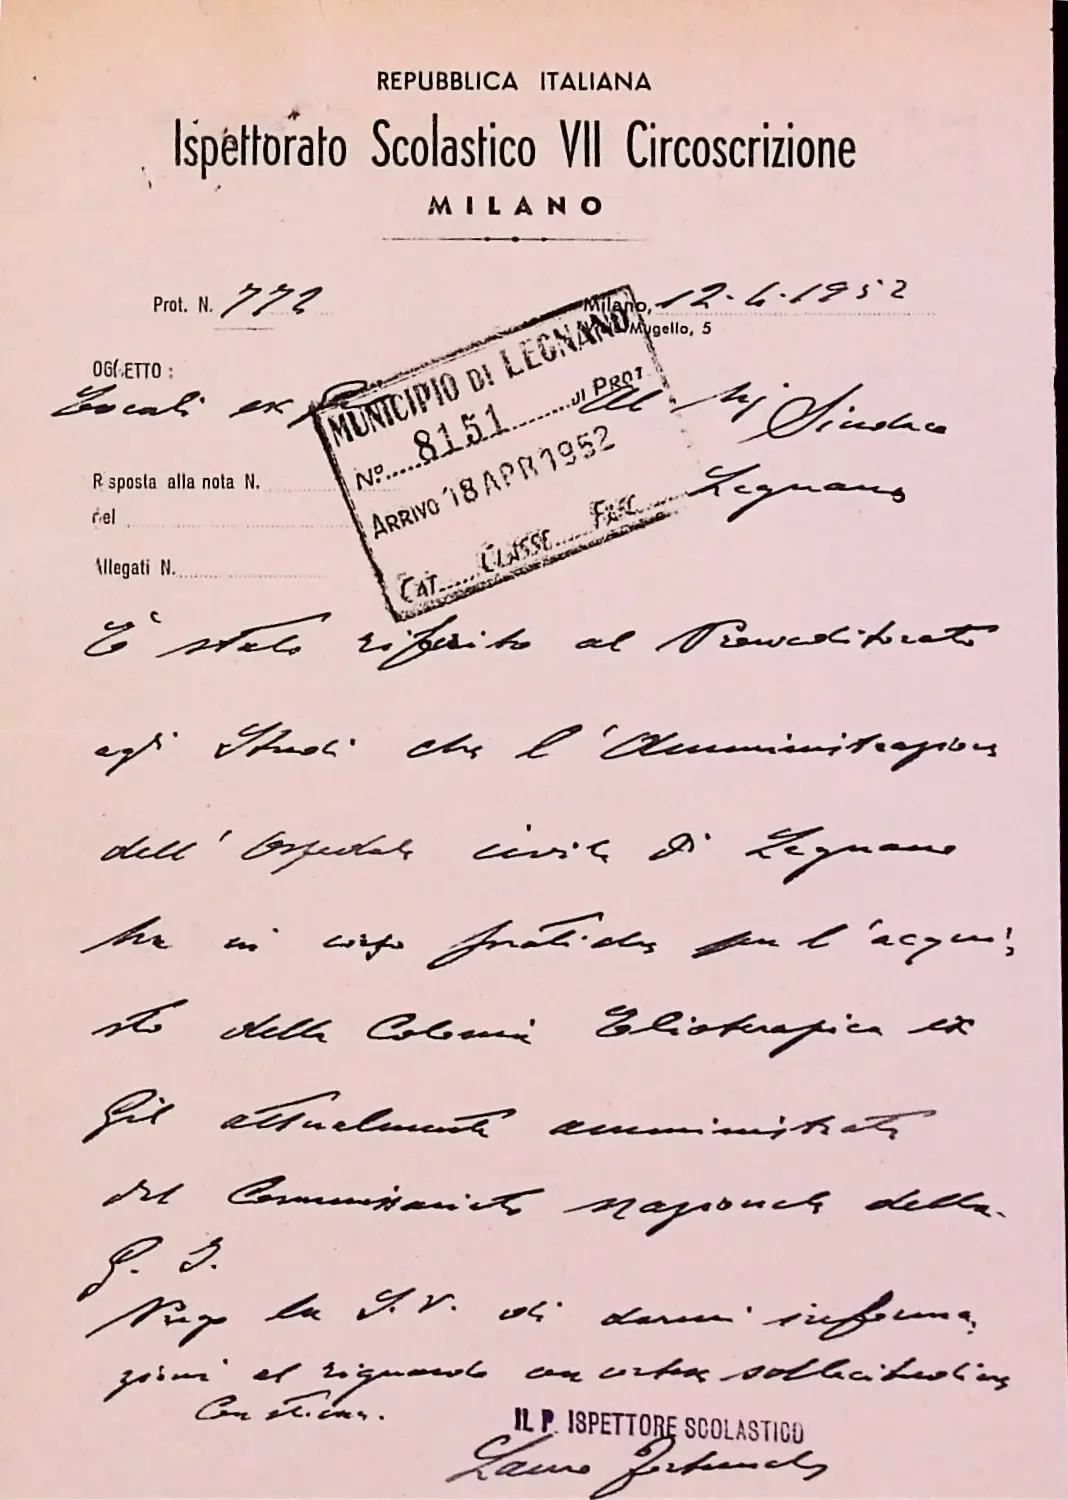 REPUBBLICA ITALIANA
Ispettorato Scolastico VII Circoscrizione
MILANO
Prot. N. 772
Milano, 12.4.1952
Viale Mugello, 5
OGGETTO :
Locali ex
MUNICIPIO DI LEGNANO
N.º 8151 DI PROT.
ARRIVO 18 APR 1952
CAT. CLASSE FASC.
Al Sig Sindaco
Legnano
Risposta alla nota N.
del
Allegati N.
È stato riferito al Provveditorato
agli Studi che l'Amministrazione
dell'Ospedale civile di Legnano
ha in corso pratiche per l'acqui
sto della Colonia Elioterapica ex
Gil attualmente amministrata
dal Commissariato nazionale della
G. I.
Prego la S.V. di darmi informa
zioni al riguardo con cortese sollecitudine
Con stima.
IL P. ISPETTORE SCOLASTICO
Lauro